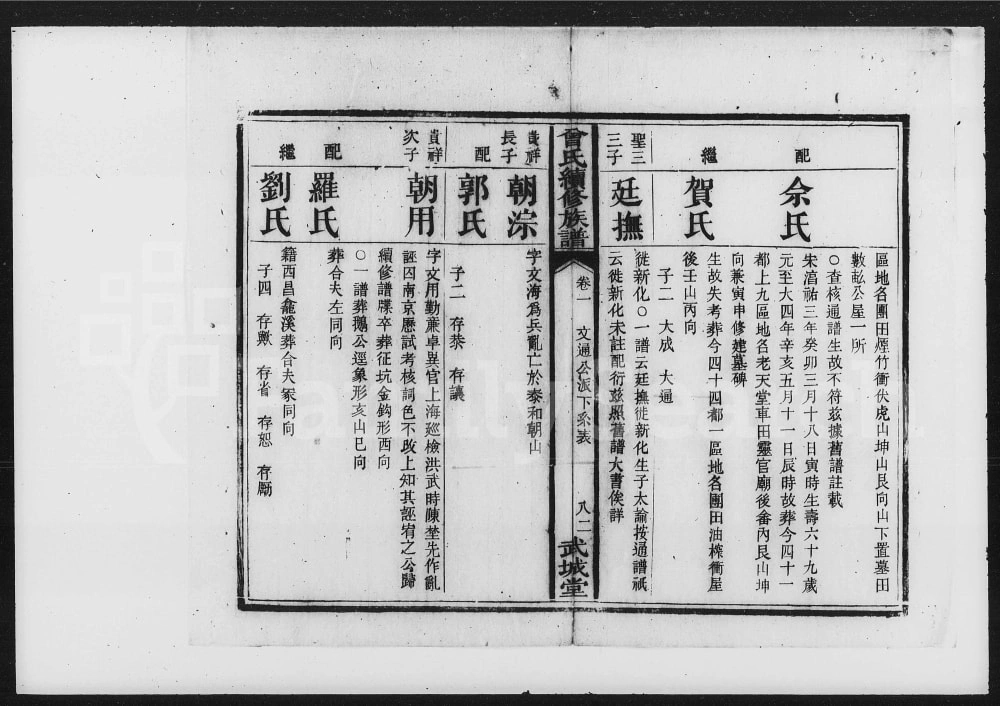 區地名團田煙竹衝伏虎山坤山艮向山下置墓田
數畝公屋一所
○查核通譜生故不符茲據舊譜註載
配
佘氏
朱湻祐三年癸卯三月十八日寅時生壽六十九歲
元至大四年辛亥五月十一日辰時故葬今四十一
都上九區地名老天堂車田靈官廟後畬內艮山坤
向兼寅申修建墓碑
繼
賀氏
生故失考葬今四十四都一區地名團田油榨衝屋
後壬山丙向
子二 大成 大通
聖三
三子
廷撫
徙新化○一譜云廷撫徙新化生子太諭按通譜祇
云徙新化未註配衍茲照舊譜大書俟詳
曾氏續修族譜
卷一 文通公派下系表
八二
武城堂
貴祥
長子
朝淙
字文海為兵亂亡於泰和朝山
配
郭氏
子二 存恭 存議
貴祥
次子
朝用
字文用勤兼卓異官上海巡檢洪武時陳埜先作亂
誣囚南京歷試考核詞色不改上知其誣宥之公歸
續修譜牒卒葬征坑金鈎形西向
○一譜葬鵝公逕象形亥山巳向
配
羅氏
葬合夫左同向
繼
劉氏
籍西昌龕溪葬合夫冢同向
子四 存歟 存省 存恕 存勵